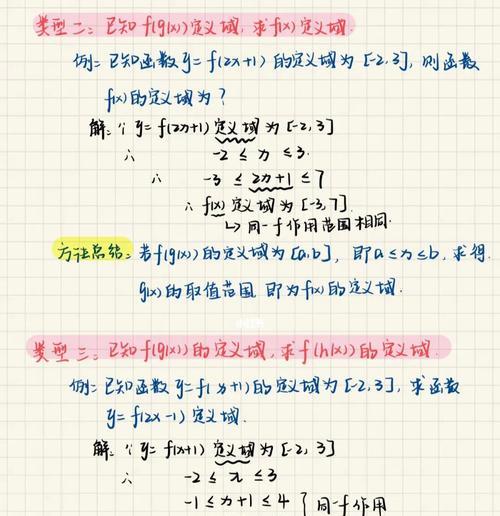 类型二：已知f(g(x))定义域，求f(x)定义域.
例：已知函数y=f(2x+1)的定义域为[-2,3]，则函数
f(x)的定义域为？
解：∵y=f(2x+1)定义域为[-2,3]
∴ -2≤x≤3.
∴ -3≤2x+1≤7
∴ f(x)定义域为[-3,7].
↳同一f作用范围相同.
方法总结：若f(g(x))的定义域为[a,b]，即a≤x≤b，求得
g(x)的取值范围 即为f(x)的定义域.
类型三：已知f(g(x))的定义域，求f(h(x))的定义域.
例：已知函数y=f(x+1)的定义域为[-2,3]，求函数
y=f(2x-1)定义域.
解：∵y=f(x+1)定义域为[-2,3]
∴ -2≤x≤3
-1≤x+1≤4 同一f作用